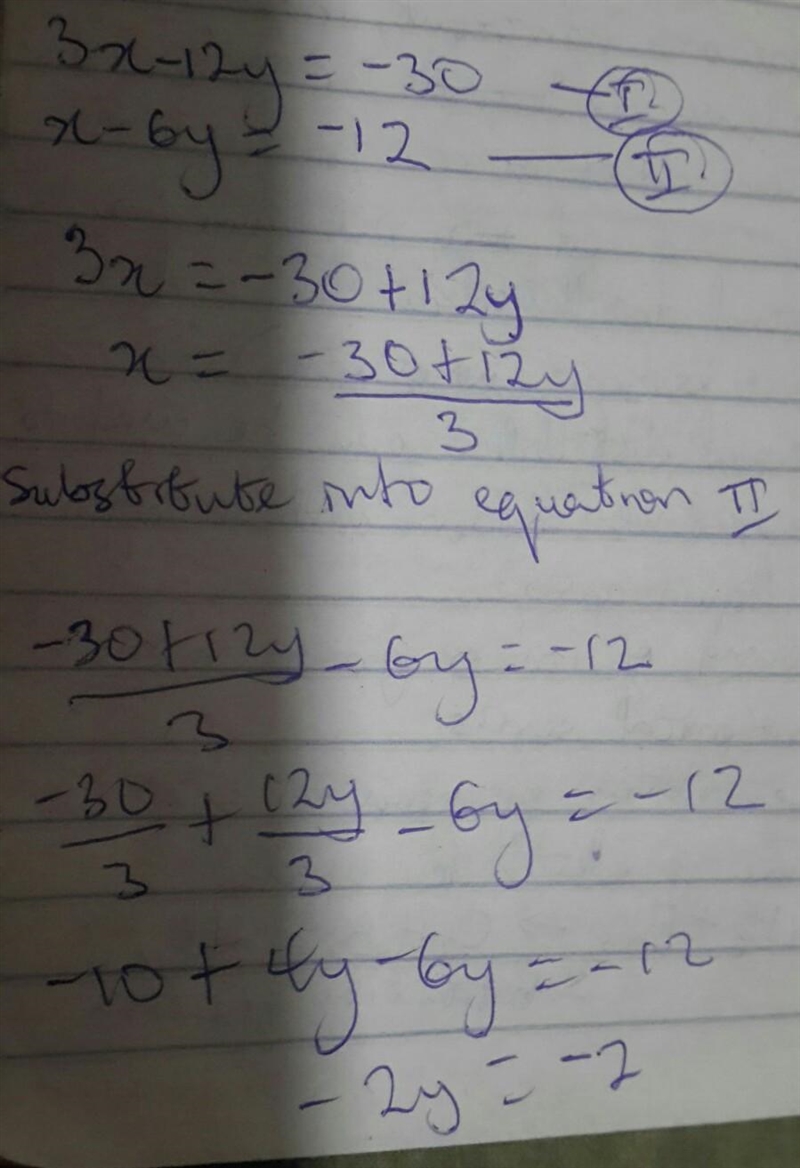 3x - 12y = -30 — I
x - 6y = -12 — II
3x = -30 + 12y
x = -30 + 12y / 3
Substitute into equation II
-30 + 12y / 3 - 6y = -12
-30/3 + 12y/3 - 6y = -12
-10 + 4y - 6y = -12
-2y = -2